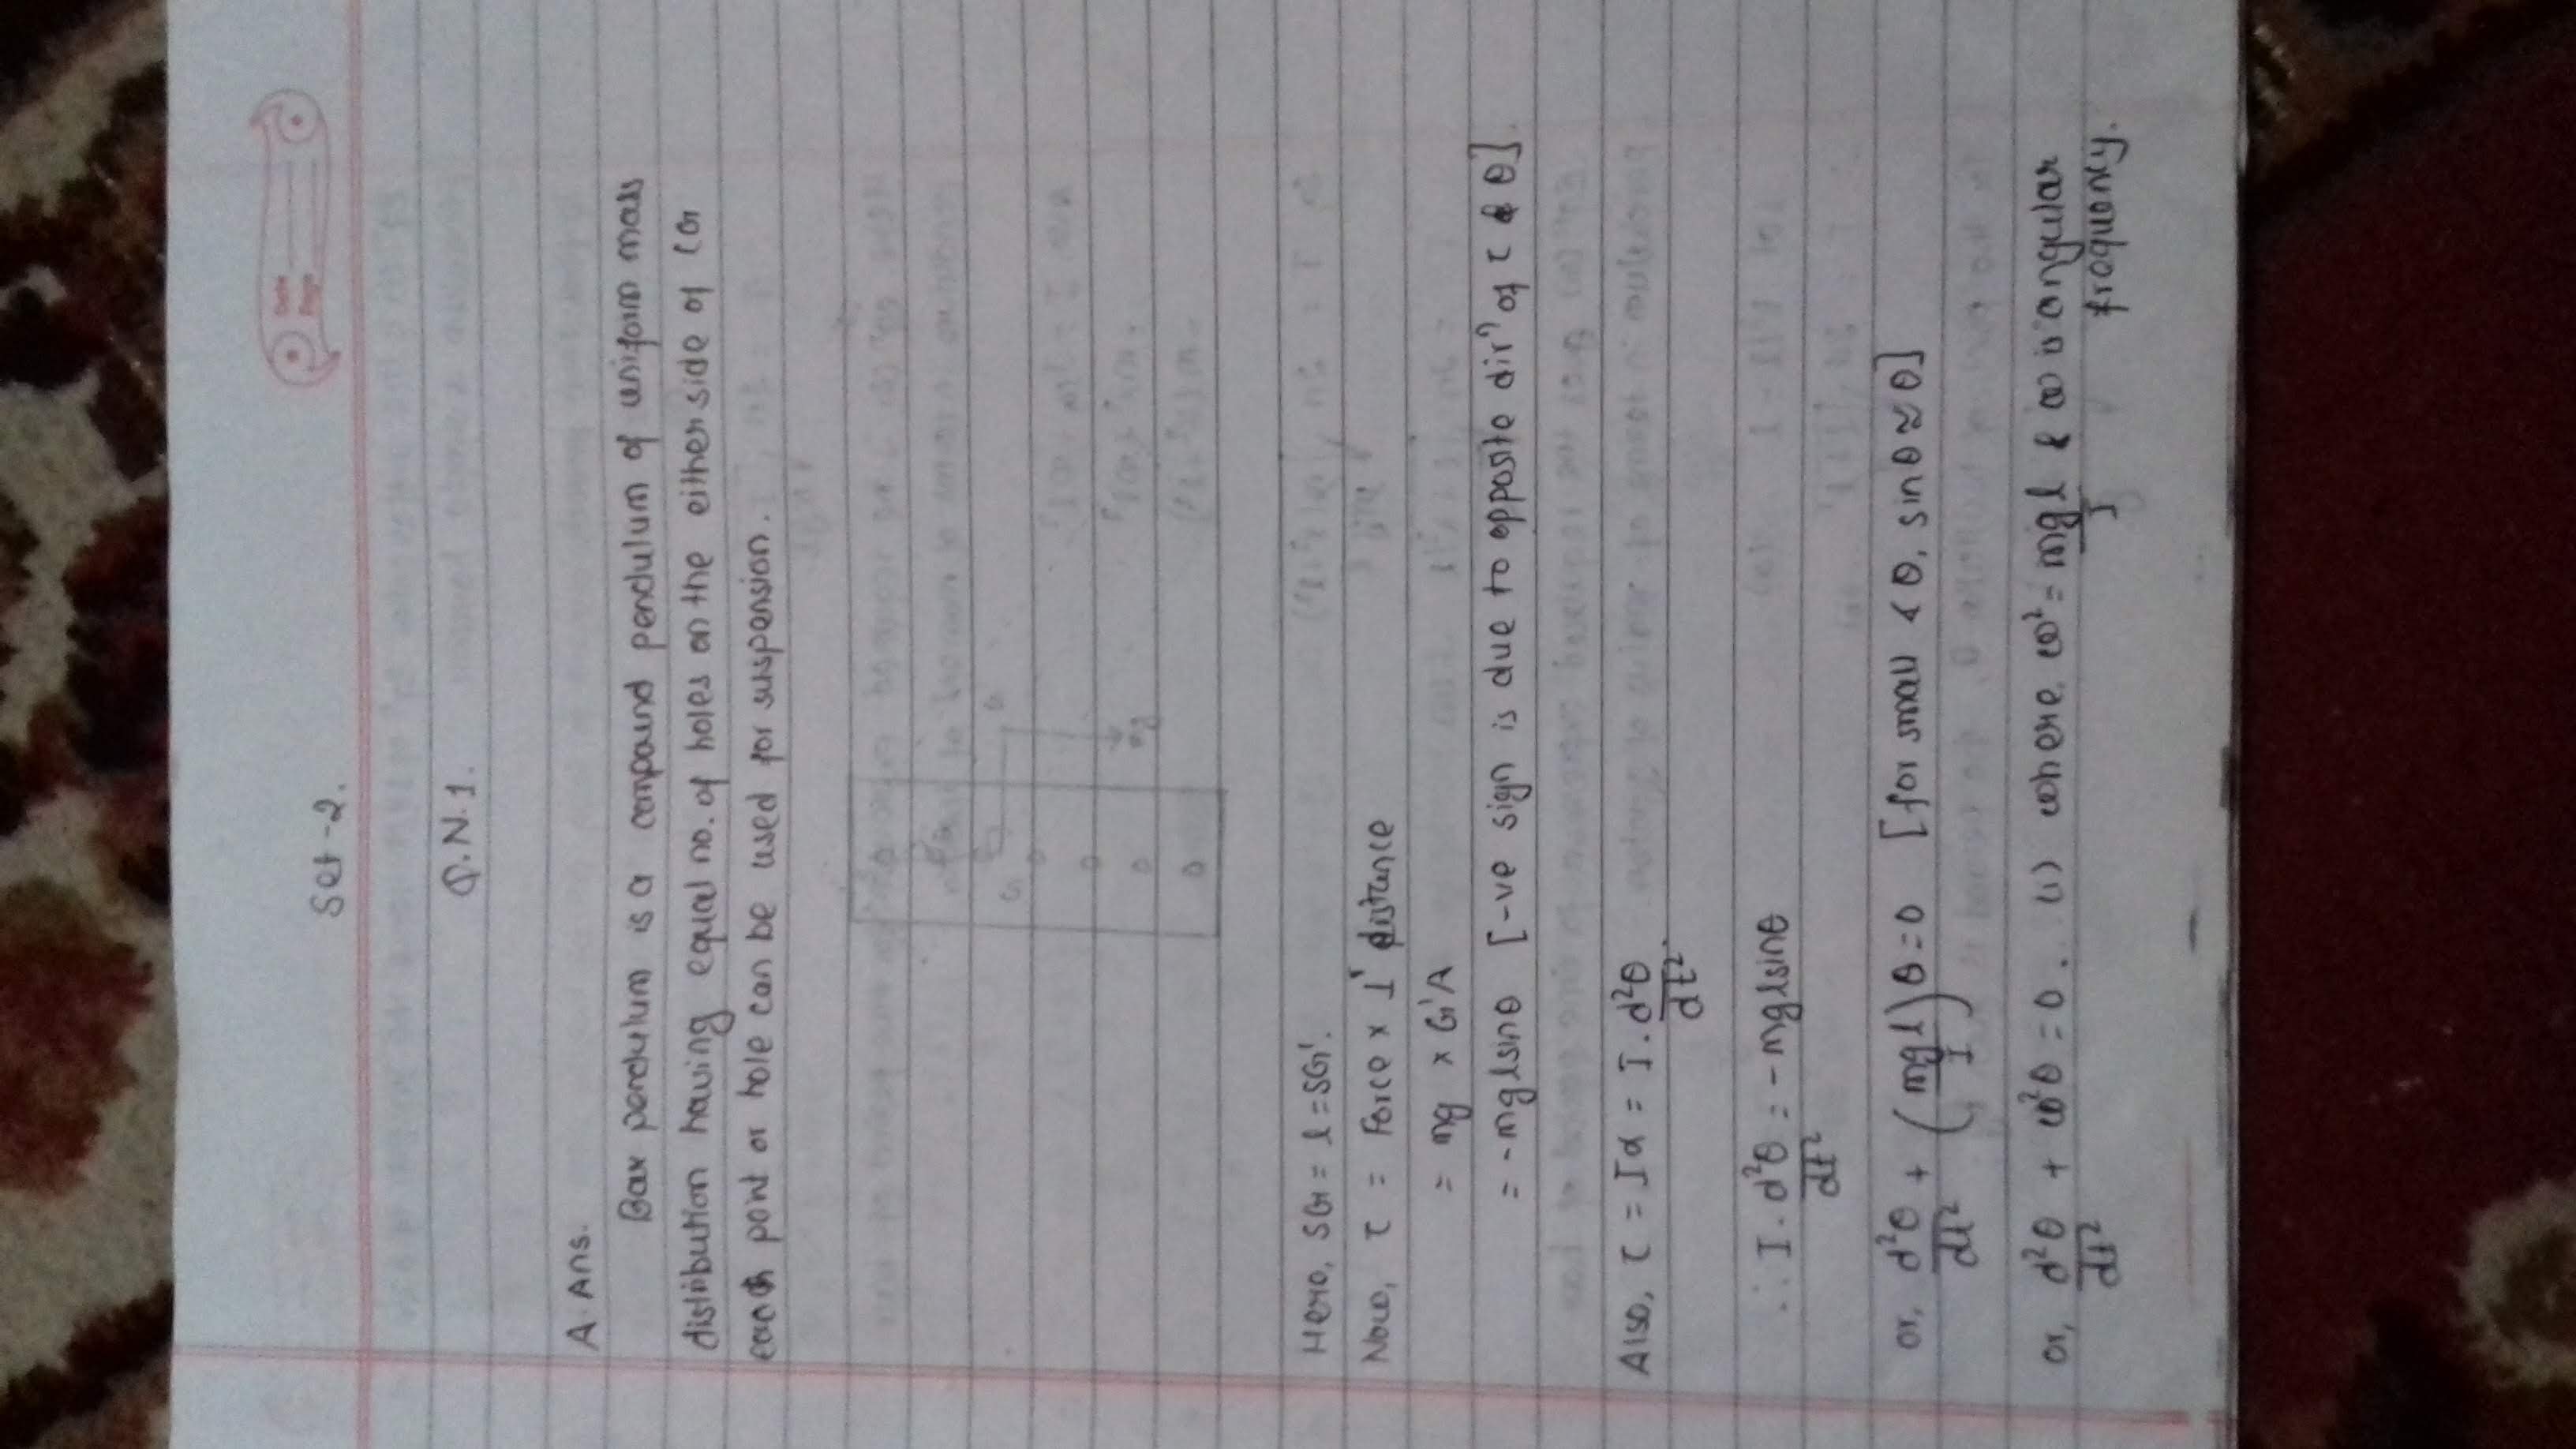 Date
Page
Set-2.
Q.N.1.
A. Ans.
Bar pendulum is a compound pendulum of uniform mass
distribution having equal no. of holes on the either side of CG
each point or hole can be used for suspension.
S
G
A
mg
Here, SG = l = SG'.
Now, τ = Force × ⊥r distance
= mg × G'A
= -mglsinθ [-ve sign is due to opposite dirn of τ & θ].
Also, τ = Iα = I. d²θ/dt².
∴ I. d²θ/dt² = -mglsinθ
or, d²θ/dt² + (mgl/I)θ = 0 [for small ∠θ, sinθ ≈ θ]
or, d²θ/dt² + ω²θ = 0. (1) where ω² = mgl/I & ω is angular
frequency.